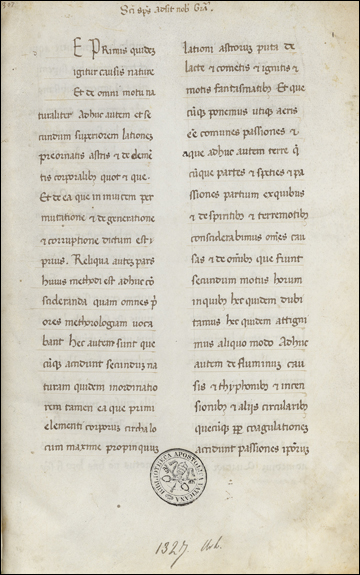 Sci sps adsit nob Gra.
E Primis quidez
igitur causis nature
Et de omni motu na
turaliter Adhuc autem et se
cundum superiorem lationez
preornatis astris & de eleme
tis corporalibus quot & que.
Et de ea que in invicem per
mutatione & de generatione
& corruptione dictum est
prius. Reliqua autez pars
huius methodi est adhuc co
sideranda quam omnes p
ores metheorologiam uoca
bant hec autem sunt que
cuqz accidunt secunduz na
turam quidem inordinatio
rem tamen ea que primi
elementi corporuz circha lo
cum maxime propinquuz
lationi astroruz puta de
lacte & cometis & ignitis &
motis fantasmatibz Et que
cuqz ponemus utiqz aeris
ee comunes passiones &
aque adhuc autem terre q
cuqz partes & species & pa
ssiones partium ex quibus
& de spiritibz & terremotibz
considerabimus omes cau
sas & de omibz que fiunt
secundum motus horum
in quibz hec quidem dubi
tamus hec quidem attigni
mus aliquo modo Adhuc
autem de fluminuz cau
sis & thyphonibz & incen
sionibz & alijs circularibz
quecuqz pp coagulationez
accidunt passiones ipsoruz
BIBLIOTHECA APOSTOLICA VATICANA
1327